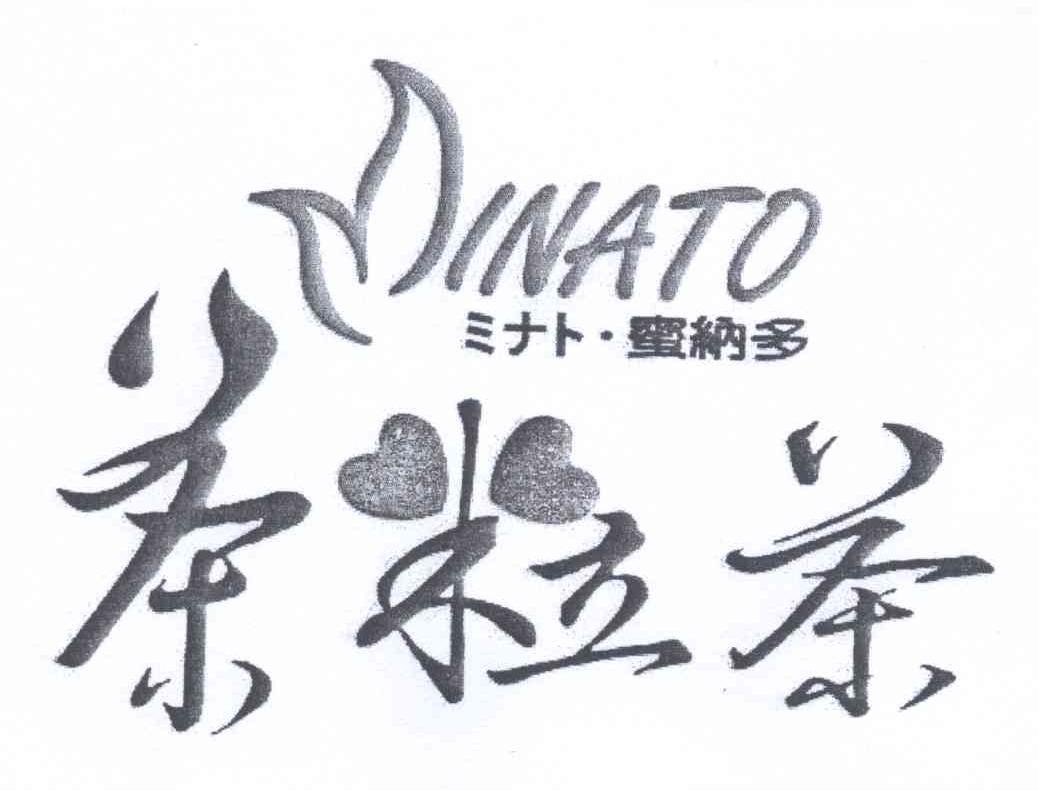 MINATO
ミナト・蜜納多
茶粒茶